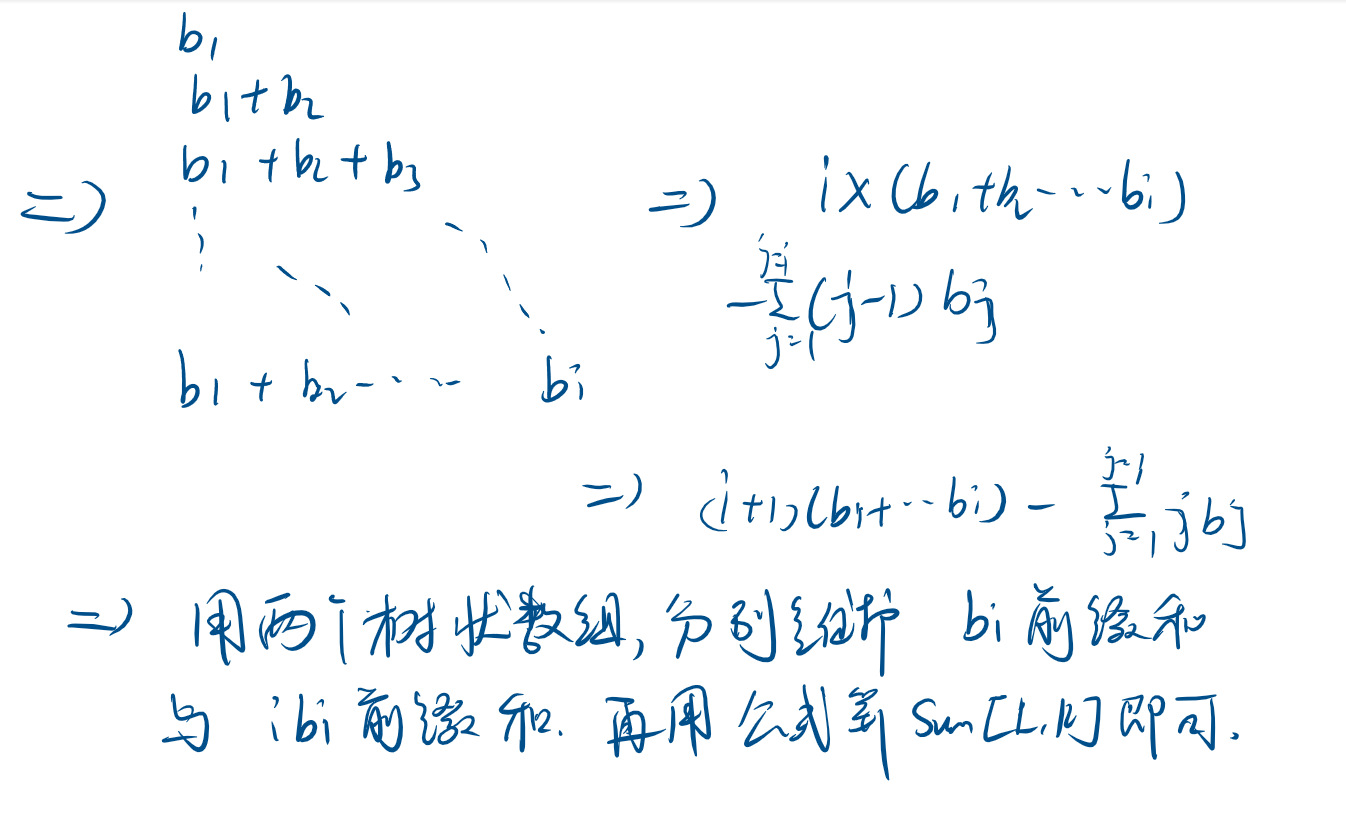 b1
b1+b2
b1+b2+b3
=>
b1+b2-···- bi
=> i×(b1+b2-···bi)
-∑_{j=1}^{j=i}(j-1)bj
=> (i+1)(b1+···bi) - ∑_{j=1}^{j=i} j bj
=> 用两个树状数组,分别维护 bi前缀和
与 ibi前缀和. 再用公式算 Sum[L,R]即可.